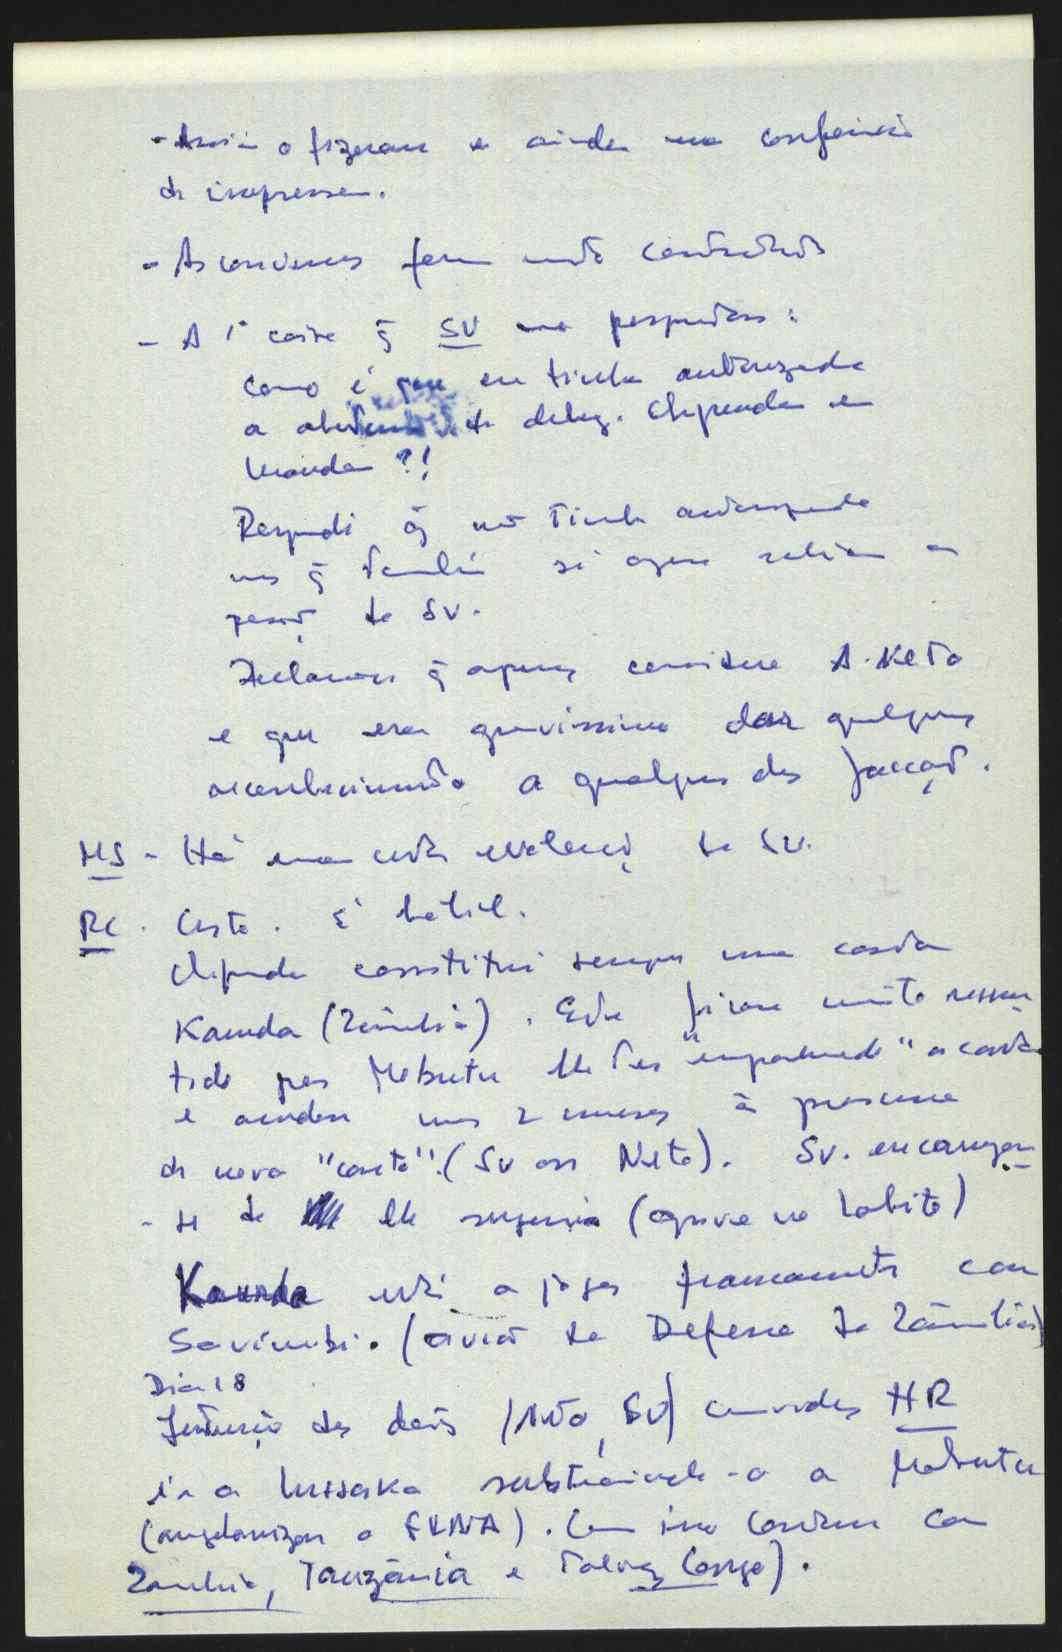 - Assim o fizeram e ainda uma conferência
de imprensa.
- As conversas foram muito
- A 1ª coisa q̃ SV me perguntou:
como é que eu tinha autorizado
a abertura da deleg. Chipenda em
Luanda ?!
Respondi q̃ não tinha autorizado
mas q̃ também só agora sabia a
posição de SV.
Declarou q̃ apenas considera A. Neto
e que era gravíssimo dar qualquer
reconhecimento a qualquer das facções.
MS - Há uma certa evolução de SV.
RC. Certo. É hábil.
Chipenda constitui sempre uma carta
Kaunda (Zâmbia). Este ficara muito ressen-
tido por Mobutu lhe ter "empalmado" a carta
e andou uns 2 meses à procura
de nova "carta". (SV ou Neto). SV. encarregou
- se de lhe (agora no Lobito)
Kaunda está a jogar francamente com
Savimbi. (avião da Defesa da Zâmbia)
Dia 18
Intenção dos dois (Neto, SV) convidar HR
ir a Lussaka subtraindo-o a Mobutu
(angolanizar a FLNA). Com isso contam com
Zambia, Tanzânia e talvez Congo).